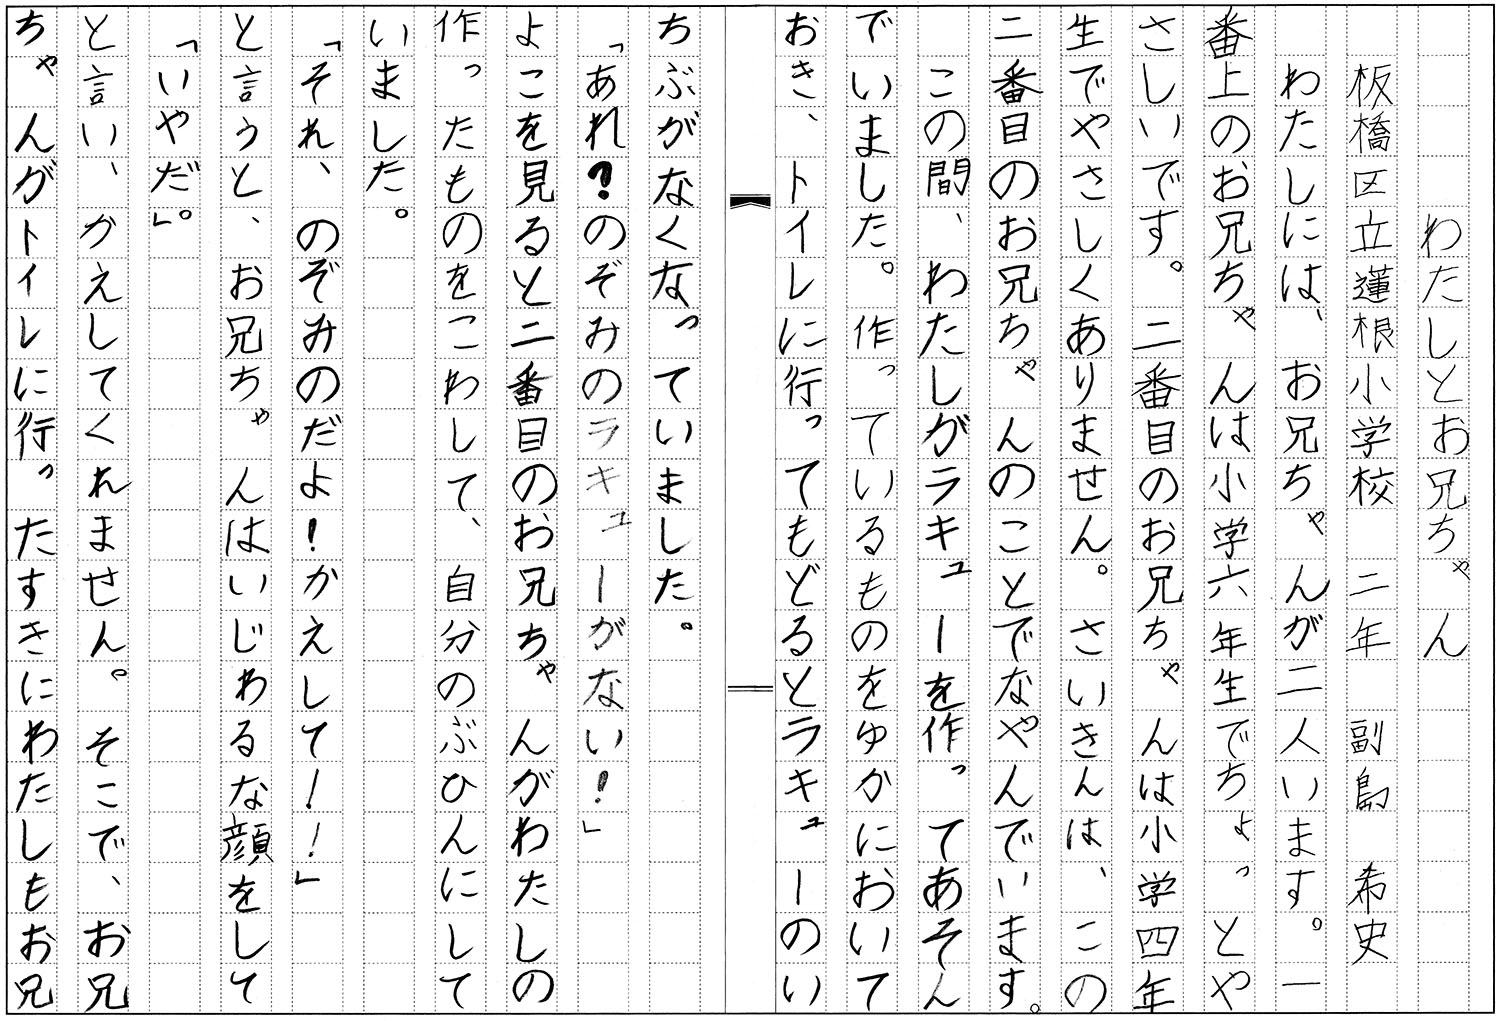 わたしとお兄ちゃん
板橋区立蓮根小学校 二年 副島 希史
わたしには、お兄ちゃんが二人います。一
番上のお兄ちゃんは小学六年生でちょっとや
さしいです。二番目のお兄ちゃんは小学四年
生でやさしくありません。さいきんは、この
二番目のお兄ちゃんのことでなやんでいます。
この間、わたしがラキューを作ってあそん
でいました。作っているものをゆかにおいて
おき、トイレに行ってもどるとラキューのい
ちぶがなくなっていました。
「あれ?のぞみのラキューがない!」
よこを見ると二番目のお兄ちゃんがわたしの
作ったものをこわして、自分のぶひんにして
いました。
「それ、のぞみのだよ!かえして!!」
と言うと、お兄ちゃんはいじわるな顔をして
「いやだ」。
と言い、かえしてくれません。そこで、お兄
ちゃんがトイレに行ったすきにわたしもお兄